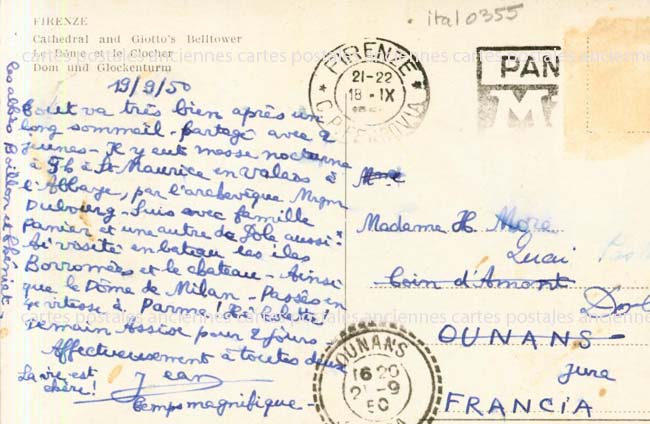 ital 0355
FIRENZE
Cathedral and Giotto's Belltower
Le Dôme et le Clocher
Dom und Glockenturm
19/9/50
Tout va très bien après un
long sommeil - partagé avec 2
jeunes - Il y eut messe nocturne
à St Maurice en Valais à
l'Abbaye, par l'archevêque Mgr
Dubourg - Suis avec famille
Panier et une autre de Dole aussi
Ai visité en bateau les îles
Borromées et le château - Ainsi
que le Dôme de Milan - Passés en
vitesse à Parme
Demain Assise pour 2 jours
Affectueusement à toutes deux
Jean
La vie est
chère!
Temps magnifique -
les abbés Boillon et
FIRENZE
21-22
18-IX
PAN
M
Madame H. Moré
Quai
Coin d'Amont
OUNANS -
Jura
FRANCIA
OUNANS
16 20
2 -9
50
cartes postales anciennes cartes postales anciennes cartes postales anciennes